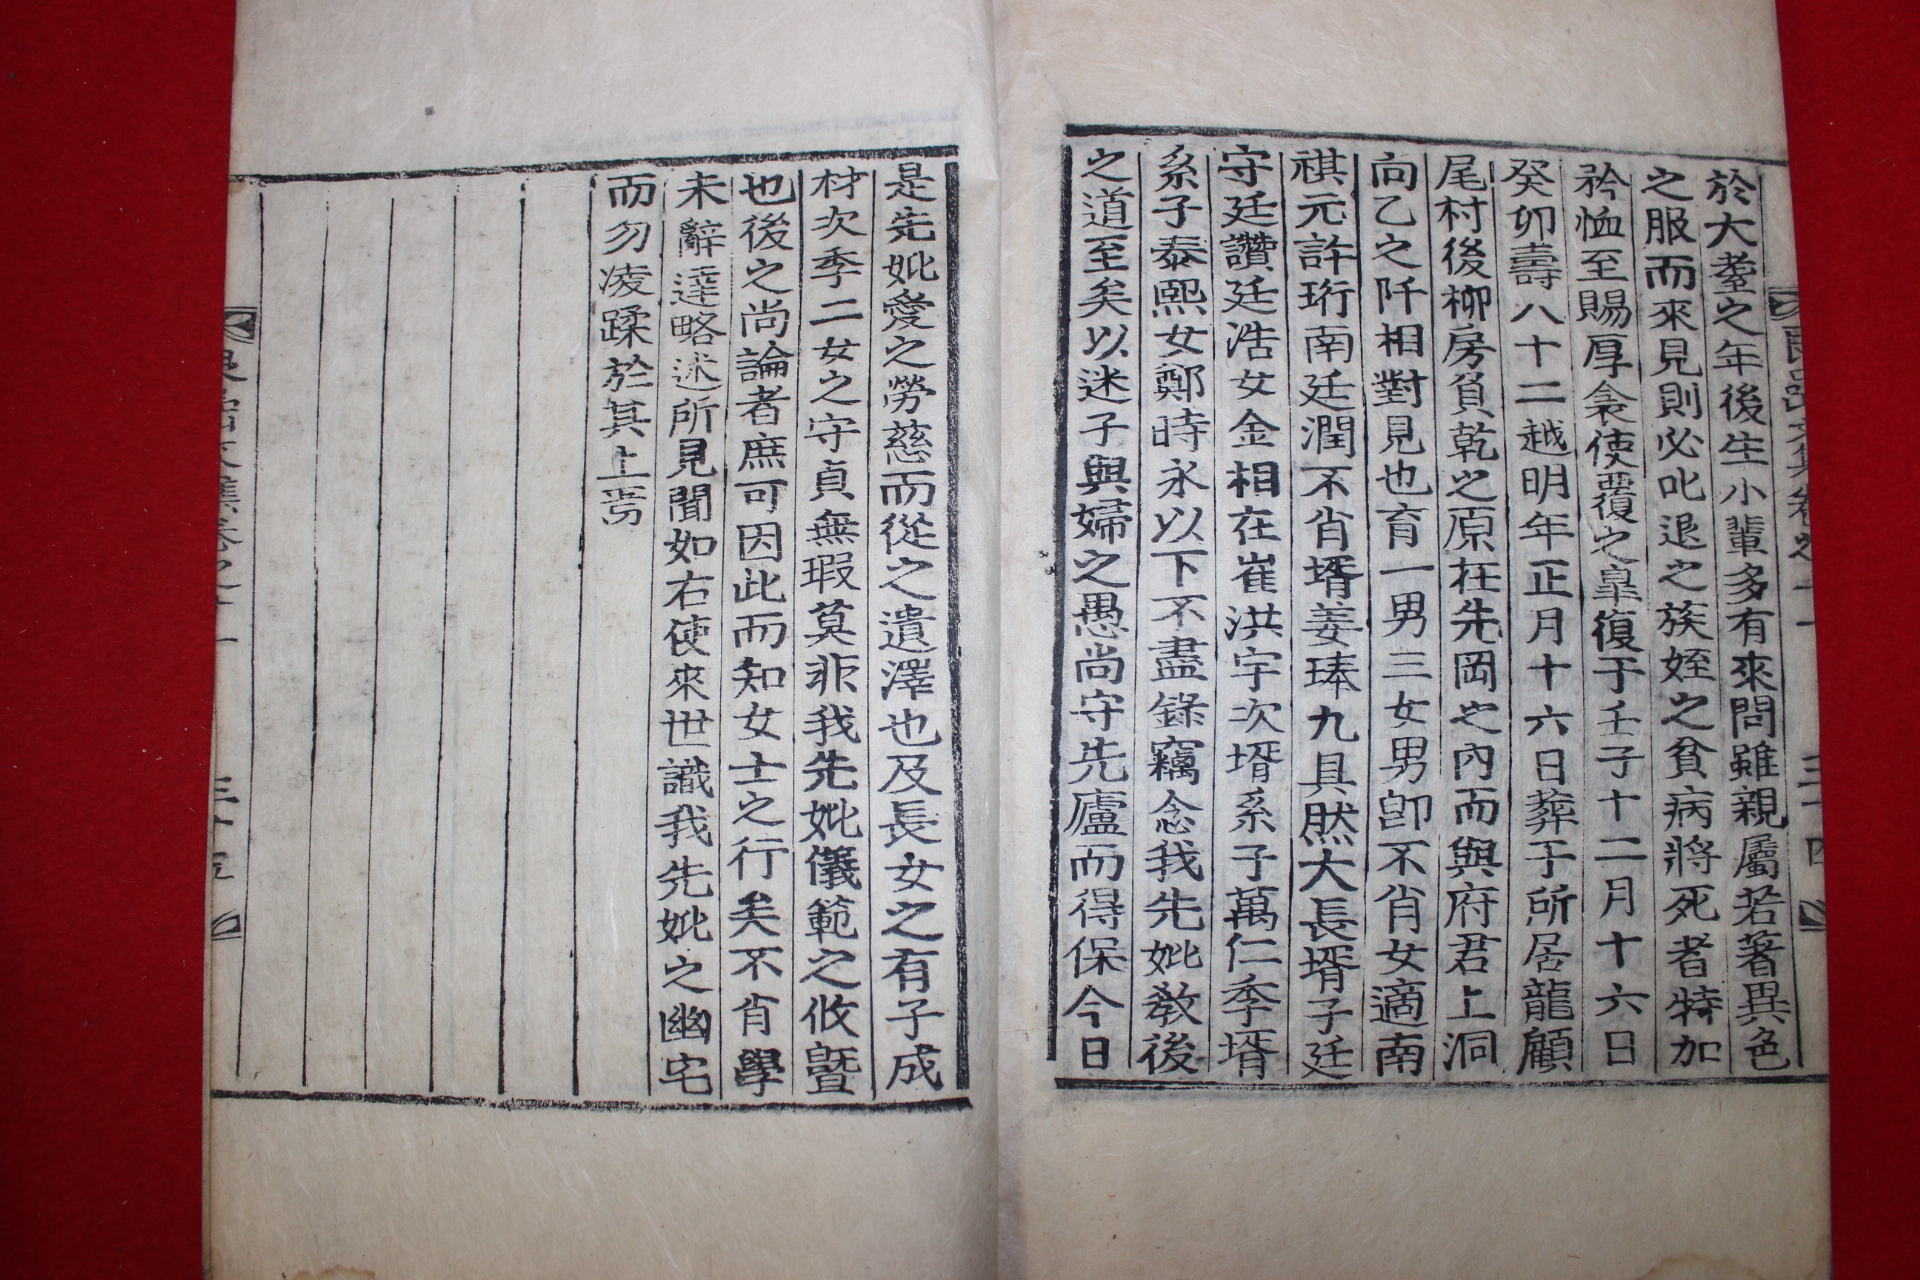 於大耋之年後生小輩多有來問雖親屬若著異色
之服而來見則必叱退之族姪之貧病將死者特加
矜恤至賜厚衾使覆之臯復于壬子十二月十六日
癸卯壽八十二越明年正月十六日葬于所居龍顧
尾村後柳房負乾之原在先岡之內而與府君上洞
向乙之阡相對見也育一男三女男卽不肖女適南
祺元許珩南廷潤不肖壻姜琫九具然大長壻子廷
守廷讚廷浩女金相在崔洪宇次壻系子萬仁季壻
系子泰熙女鄭時永以下不盡錄竊念我先妣敎後
之道至矣以迷子與婦之愚尚守先廬而得保今日
是先妣愛之勞慈而從之遺澤也及長女之有子成
材次季二女之守貞無瑕莫非我先妣儀範之攸曁
也後之尚論者庶可因此而知女士之行矣不肖學
未辭達略述所見聞如右使來世識我先妣之幽宅
而勿凌蹂於其上焉
文集卷之十一
三十五